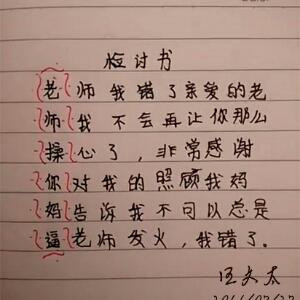 检讨书
老师我错了亲爱的老
师我不会再让你那么
操心了，非常感谢
你对我的照顾我妈
妈告诉我不可以总是
逼老师发火，我错了。
汪文太